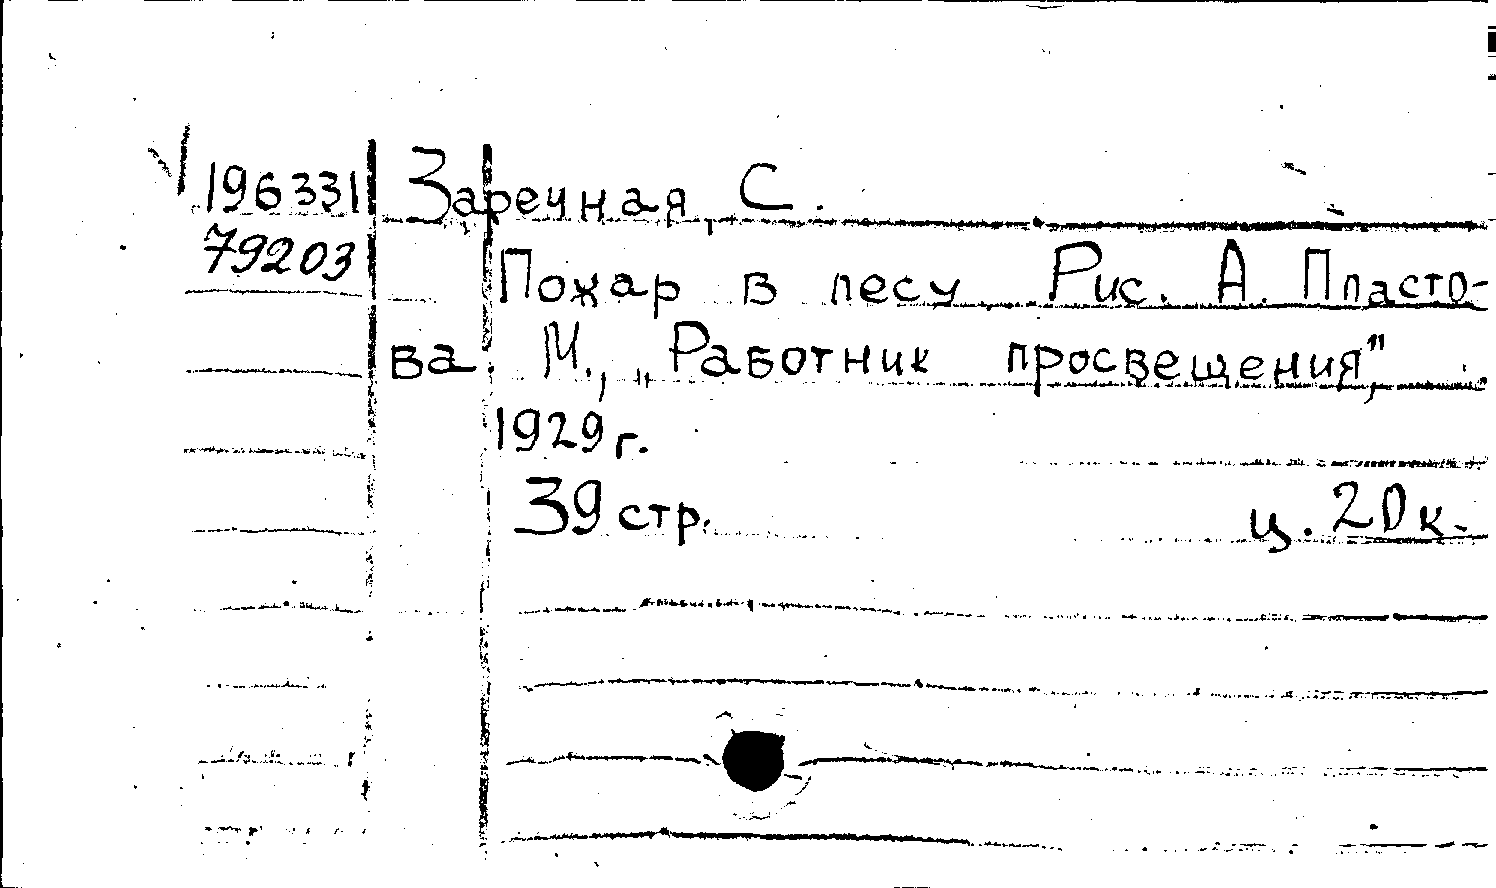 196331 Заречная, С.
79203 Пожар в лесу Рис. А. Пласто-
ва. М., „Работник просвещения",
1929 г.
39 стр. ц. 20 к.